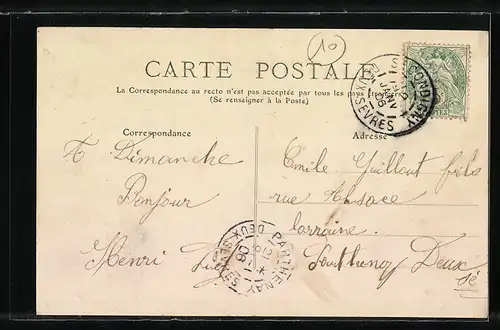 10
CARTE POSTALE
La Correspondance au recto n'est pas acceptée par tous les pays
(Se renseigner à la Poste)
Correspondance
Adresse
A Dimanche
Bonjour
Henri
Emile Guillout fils
rue Alsace
lorraine
Deux
JANV
06
DEUX SEVRES
PARTHENAY
DEUX SEVRES
06